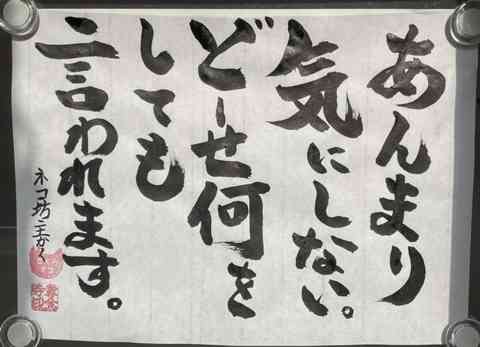 あんまり
気にしない。
どーせ何を
しても
言われます。
ネコ坊主かく